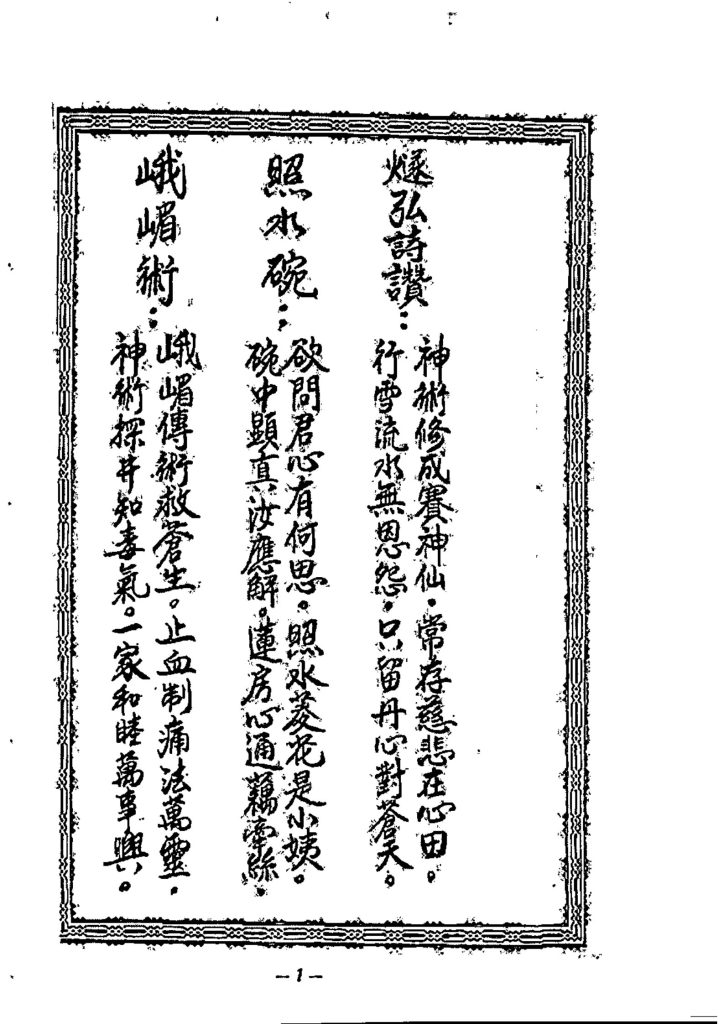 燧弘詩讚：
神術修成賽神仙。常存慈悲在心田。
行雪流水無恩怨。只留丹心對蒼天。
照水碗：
欲問君心有何思。照水菱花是小姨。
碗中顯真汝應解。蓮房心通藕牽絲。
峨嵋術：
峨嵋傳術救蒼生。止血制痛法萬靈。
神術探井知毒氣。一家和睦萬事興。
－1－